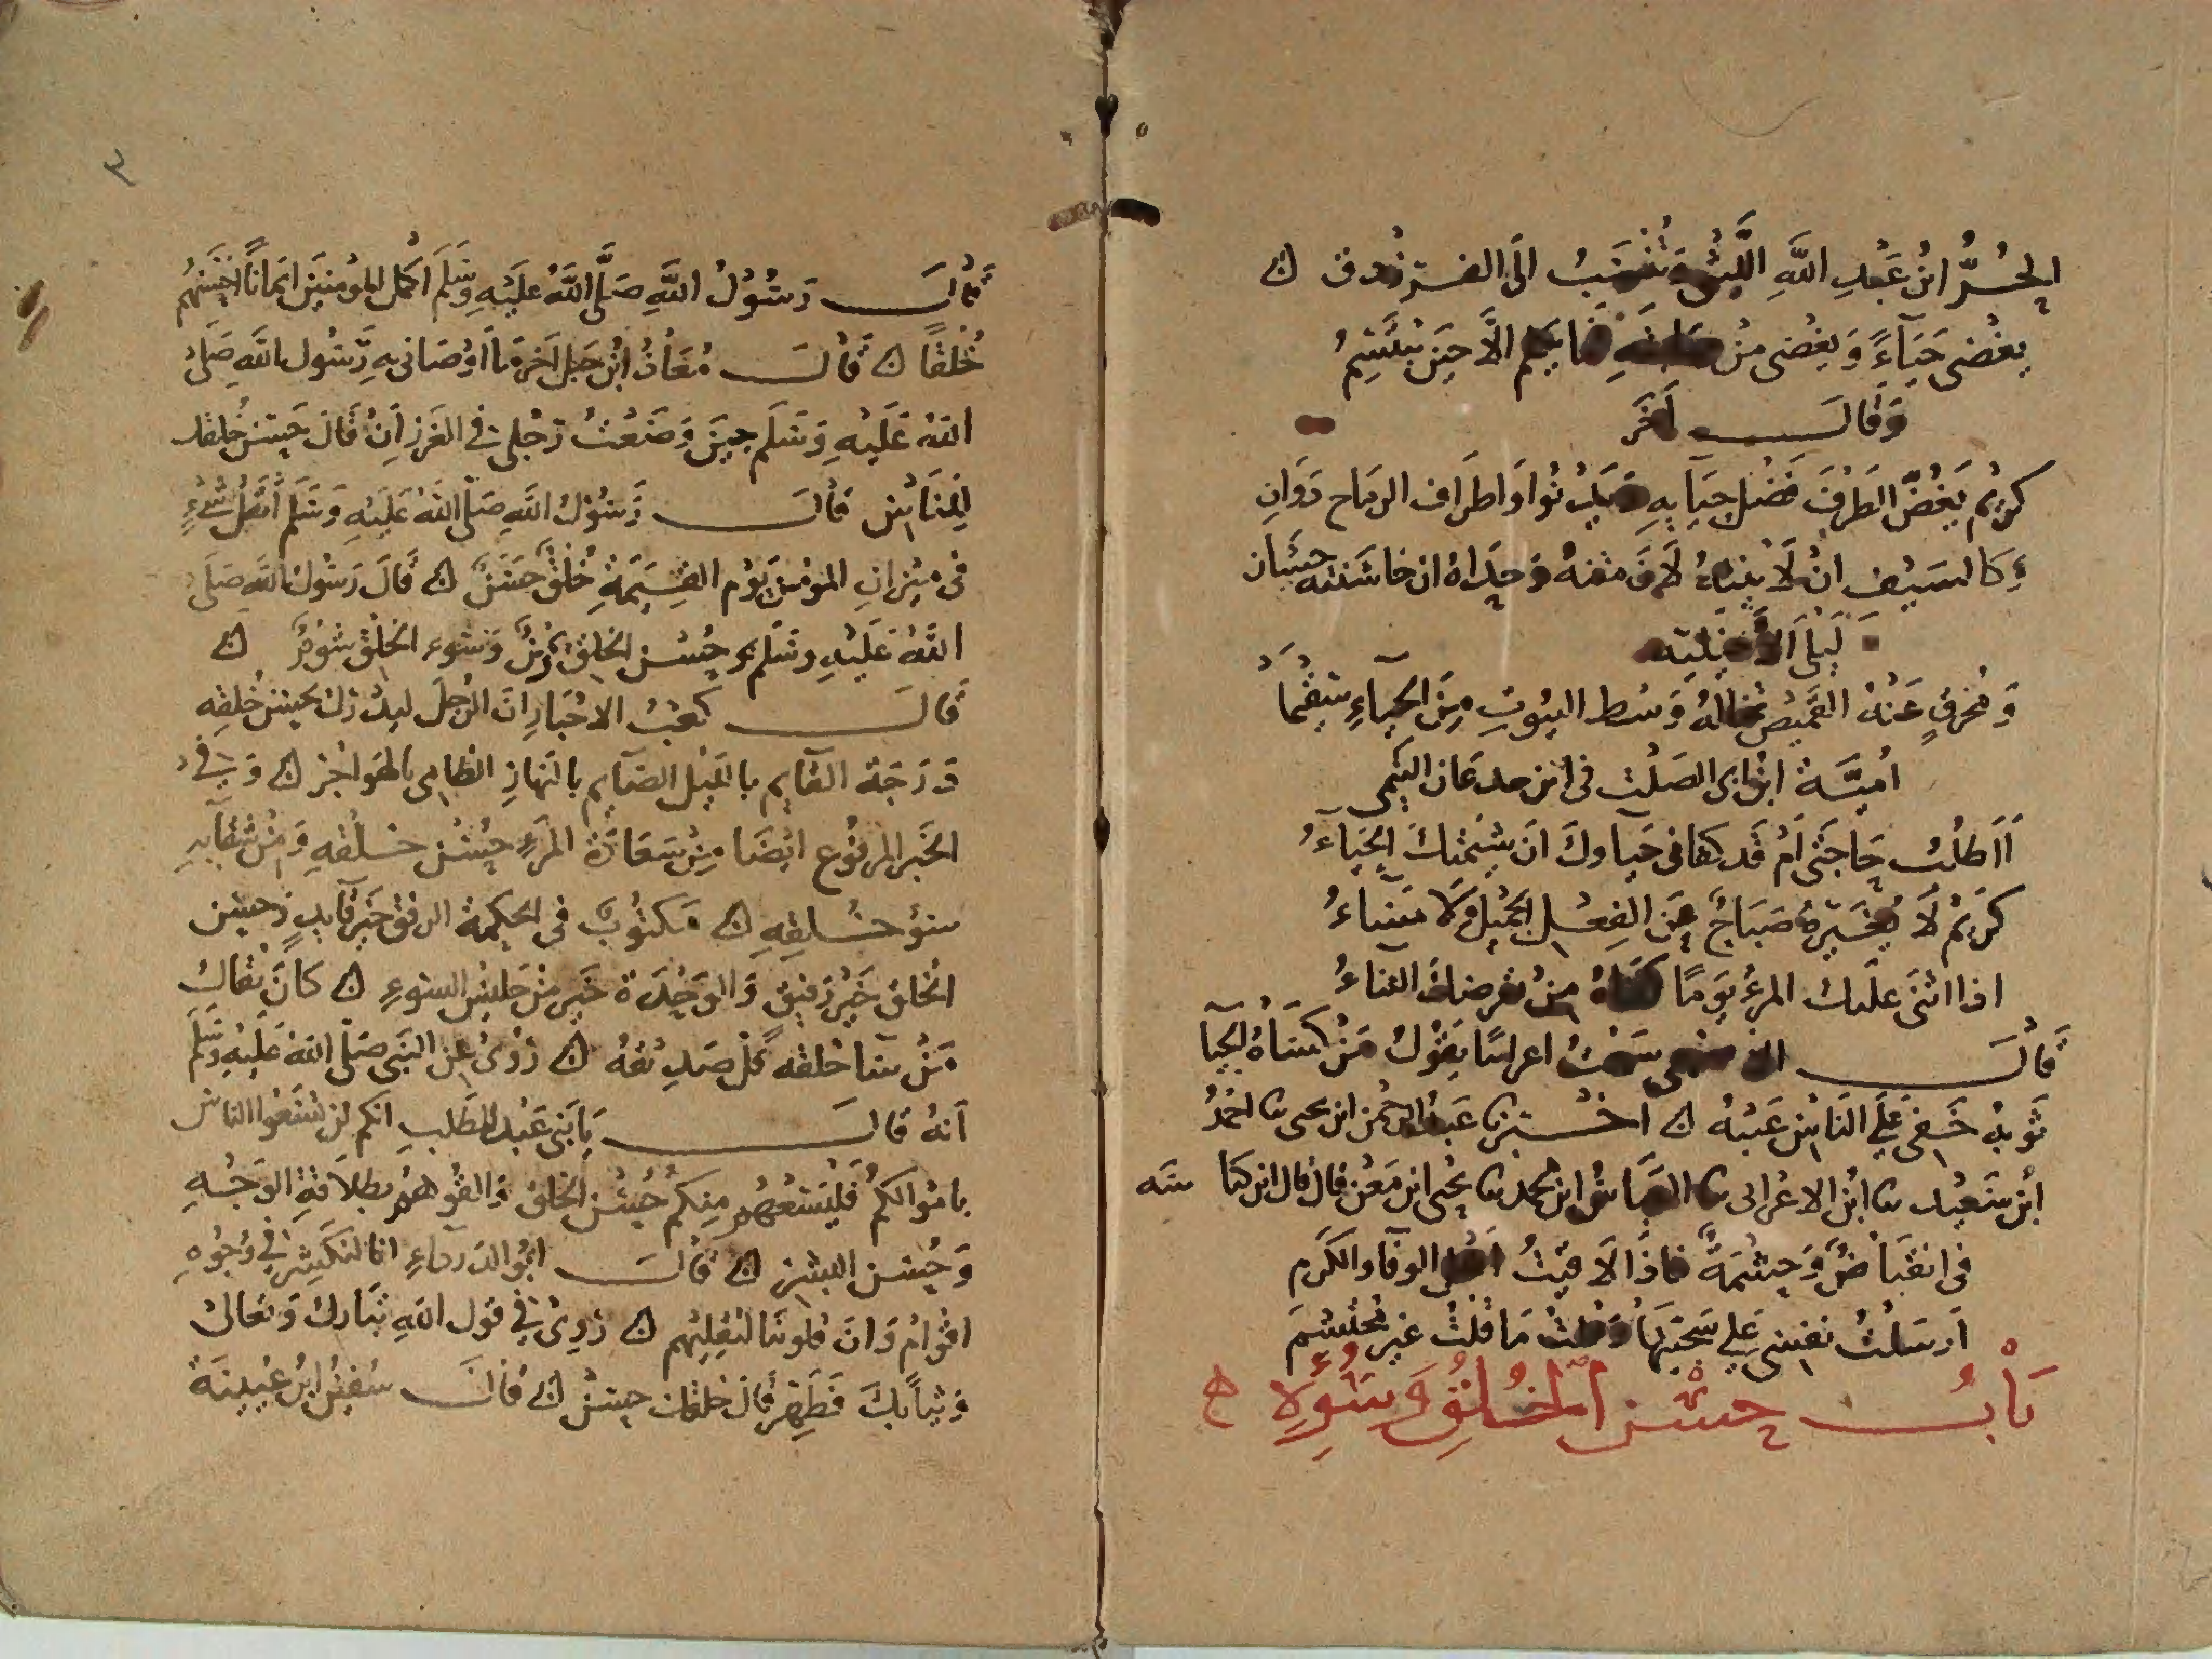 الحُرُّ ابنُ عَبْدِ اللَّهِ اللَّيْثِي وَتُنْسَبُ الَى الفرزدق
يغْضى حَيَآءً وَيغْضى مِنْ فَمَا يكلم الَّا حين يبتَسِمُ
وَقَالَ آخَرَ
كَرِيْم يَغُضّ الطَرْفَ فَضْل حيَايهِ وَيَدْنُوا وَاطرَاف الرمَاح دَوَانِ
وَكَالسَيْف انْ لَايَنْتهُ لَانَ متنهُ وَحدَاهُ ان خاشَنْته خشنان
لَيْلَى الأَخْيَليَّه
وَمُخرقٍ عَنْهُ القَمِيص تخالُهُ وَسْط البيُوتِ مِنَ الحيَآءِ سَقِيمَا
اميَّة ابْن ابى الصَلْت فى ابن جدعَان التيمى
أَاَطلُبُ حَاجَتى اَمْ قَد كفانى حَيَاوكَ انَ شِيْمَتَكَ الحَيَآءُ
كَرِيْمٌ لَا يُغَيّرهُ صَبَاحٌ عَنِ الفِعْلِ الجَمِيْلِ وَلَا مَسَاءُ
اذا اثنَى علَيك المرءُ يَومًا كفاهُ مِنْ تعرضك الثناءُ
قَالَ سَمعْتُ اعرابيًا يَقُوْلُ مَنْ كسَاهُ الحيَا
ثَوبهُ خَفِىَ عَلَى النَّاسِ عَيْبُهُ اخْبرنا عَبدُ الرحْمن ابن يحيى نا احْمَدُ
ابْن سَعِيْد نا ابْن الاعْرابى نا العَبَّاسُ ابن محمد نا يحْيى ابن مَعْن قال قال ابن كنا سَه
فى انقبَاضٌ وَحِشْمَةٌ فَاذَا لَا قيتُ اهْل الوفَا والكَرم
اَرسَلْتُ نفْسى عَلى سَجيَّتِهَا وقلتُ مَا قلتُ غَير مُحتشمَ
بَابُ حُسْن الْخُلُقِ وَسُوْءِهِ
٣
قَالَ رَسُوْلُ اللَّهِ صَلَّى اللَّهُ عَلَيْهِ وَسَلَّمَ اكمَلُ المؤمنينَ ايمَانًا احْسَنهُم
خُلقًا قَالَ مُعَاذُ ابْن جَبل آخرُ مَا اَوْصَانى بهِ رَسُول اللَّه صَلى
اللهُ عَلَيْهِ وَسَلَم حِينَ وَضَعْتُ رجْلى فى الغَرزِ اَنْ قَالَ حَسِّن خلقك
لِلنَاسِ قَالَ رَسُوْلُ اللَّهِ صَلَى اللَّهُ عَلَيْهِ وَسَلَّم أَثقَلُ شَىْءٍ
فى ميْزانِ المؤمن يَوْم القِيَمَةِ خُلقٌ حَسَنٌ قَالَ رَسُول اللَّهِ صَلَى
اللَّهُ عَلَيْهِ وسَلم حُسْن الخلقِ يُمْنٌ وَسُوء الخُلُقِ شُوْمٌ
قَالَ كعْبُ الاحْبَارِ انَ الرُجلَ ليدْرك بحُسْنِ خُلقِه
دَرَجَة القَايمِ بالَّيْل الصَايم بالنهَارِ الظَامِى بالهَواجر وَ فى
الخَبر المرفُوع ايْضَا مِنْ سَعَادَة المَرْءِ حُسْن خُلقهِ وَمِنْ شقَآيهِ
سُوْ خُلقهِ مَكتُوْبٌ فى الحِكمَة الرفْق خَير قآيدٍ وَحسْن
الخُلق خَيْر رَفيق وَالوَحْدَة خَير مِن جَليْسِ السوءِ كَانَ يُقَال
مَنْ سَآ خلقه قَلَّ صَدِيْقهُ رُوِىَ عَنِ النَبي صَلَى اللهُ عَلَيْهِ وَسَلم
اَنهُ قَالَ يَا بَنِى عَبْد المطَلبِ انكم لن تسَعُوا النَاسَ
بامْوالكمُ فَليَسَعْهُم مِنكمُ حُسْن الخلقَ وَالقوهمْ بطلَاقَة الوَجْهِ
وَحُسْن البِشر قَالَ ابُو الدَردَآءِ انا لنكَشِر فى وُجُوهِ
اقْوامٍ وَانَ قلُوبنَا لتقليهم رُوِىَ فِى قول اللهِ تبَاركَ وَتعَالىَ
وَثيَابكَ فَطَهِّر قَالَ خلقَك حسّن قَالَ سُفيْن ابْن عُيَيْنَةَ